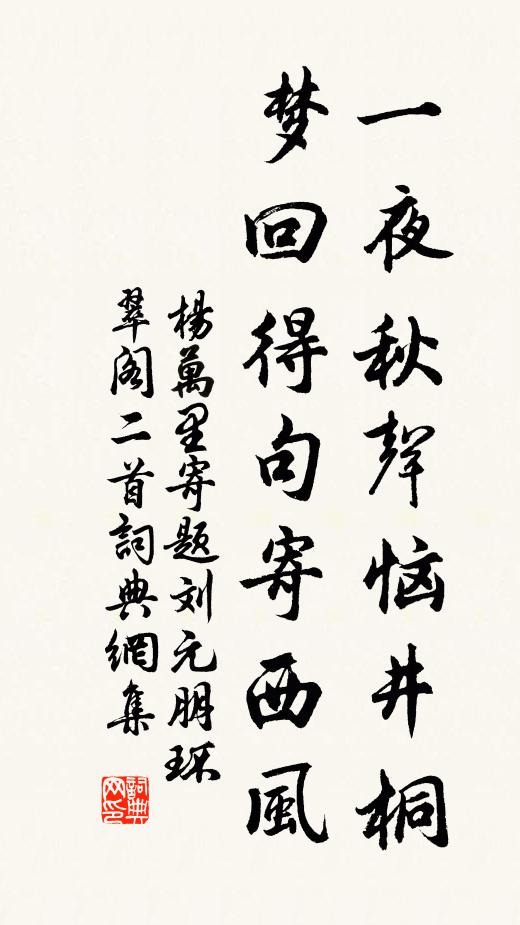 一夜秋聲恼井桐
梦回得句寄西風
楊萬里寄題刘元朋环
翠阁二首詞典網集
詞典
网印